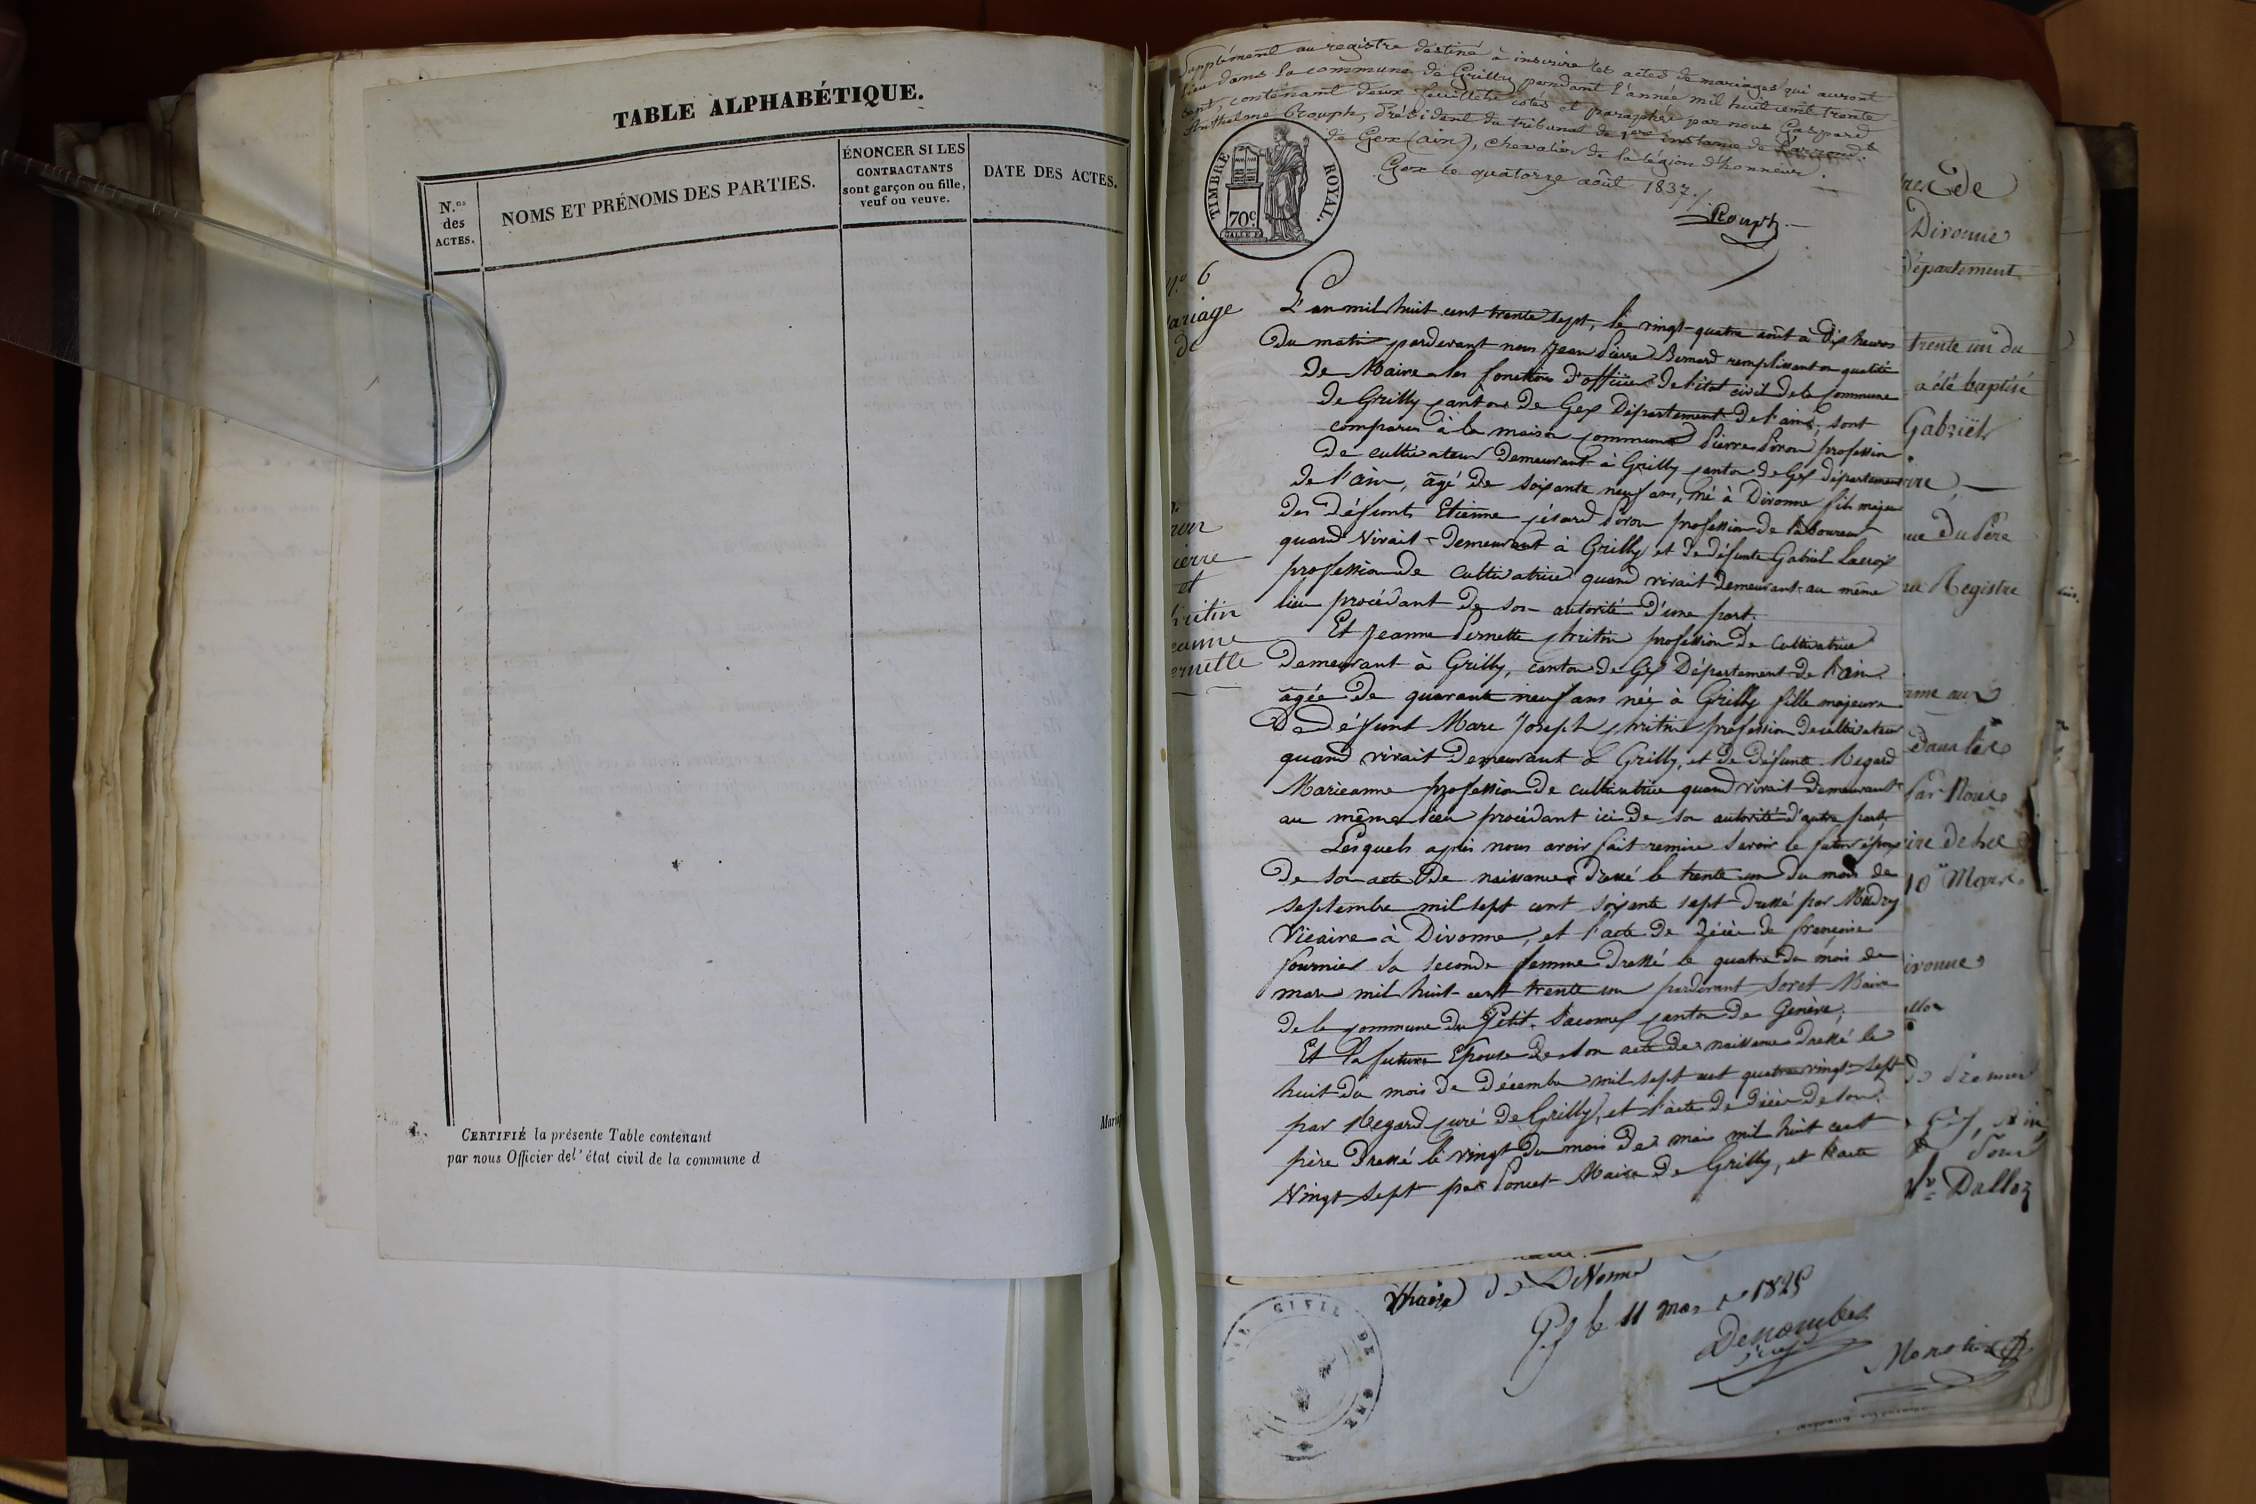 TABLE ALPHABÉTIQUE.
N.os
des
ACTES.
NOMS ET PRÉNOMS DES PARTIES.
ÉNONCER SI LES
CONTRACTANTS
sont garçon ou fille,
veuf ou veuve.
DATE DES ACTES.
CERTIFIÉ la présente Table contenant
par nous Officier de l'état civil de la commune d
Maria
Supplément au registre destiné à inscrire les actes de mariages qui auront
lieu dans la commune de Grilly pendant l'année mil huit cent trente
sept, contenant deux feuillets cotés et paraphés par nous Gaspard
Anthelme Rouph, Président du tribunal de 1ère instance de l'arrond.t
de Gex (ain), chevalier de la légion d'honneur.
Gex le quatorze août 1837.
Rouph
TIMBRE ROYAL.
70c
N.o 6
ariage
de
L'an mil huit cent trente sept, le vingt-quatre août à dix heures
du matin pardevant nous Jean Pierre Bernard remplissant en qualité
de Maire les fonctions d'officier de l'état civil de la Commune
de Grilly canton de Gex Département de l'ain, sont
comparus à la maison commune Pierre Piron profession
de cultivateur Demeurant à Grilly canton de Gex département
de l'ain, âgé de soixante neuf ans, né à Divonne fils majeur
des défunts Etienne gérard Piron profession de laboureur
quand vivait Demeurant à Grilly et de défunte Gabriel Lacroix
profession de cultivatrice quand vivait demeurant au même
lieu procédant de son autorité d'une part.
ierre
et
ritin
eanne
ernette
Et Jeanne Pernette chritin profession de cultivatrice
Demeurant à Grilly, canton de Gex Département de l'ain
âgée de quarante neuf ans née à Grilly fille majeure
De défunt Marc Joseph chritin profession de cultivateur
quand vivait Demeurant à Grilly, et de défunte Regard
Marieanne profession de cultivatrice quand vivait demeurant
au même lieu procédant ici de son autorité d'autre part
Lesquels après nous avoir fait remise savoir le futur époux
De son acte de naissance dressé le trente un du mois de
septembre mil sept cent soixante sept dressé par Mudry
Vicaire à Divonne, et l'acte de décès de françoise
fournier sa seconde femme dressé le quatre du mois de
mars mil huit cent trente un pardevant Soret Maire
de la commune du Petit Saconnex canton de Genève;
Et la future Epouse de son acte de naissance dressé le
huit du mois de Décembre mil sept cent quatre vingt sept
par Regard curé de Grilly, et l'acte de décès de son
père Dressé le vingt du mois de mai mil huit cent
vingt sept par Poncet Maire de Grilly, et l'acte
de
Divonne
Département
trente un du
a été baptisé
Gabriel
ue du Père
Registre
dans les
par Nous
Dalloz
Mairie de Divonne
Gex le 11 mars 1825
CIVIL DE GEX